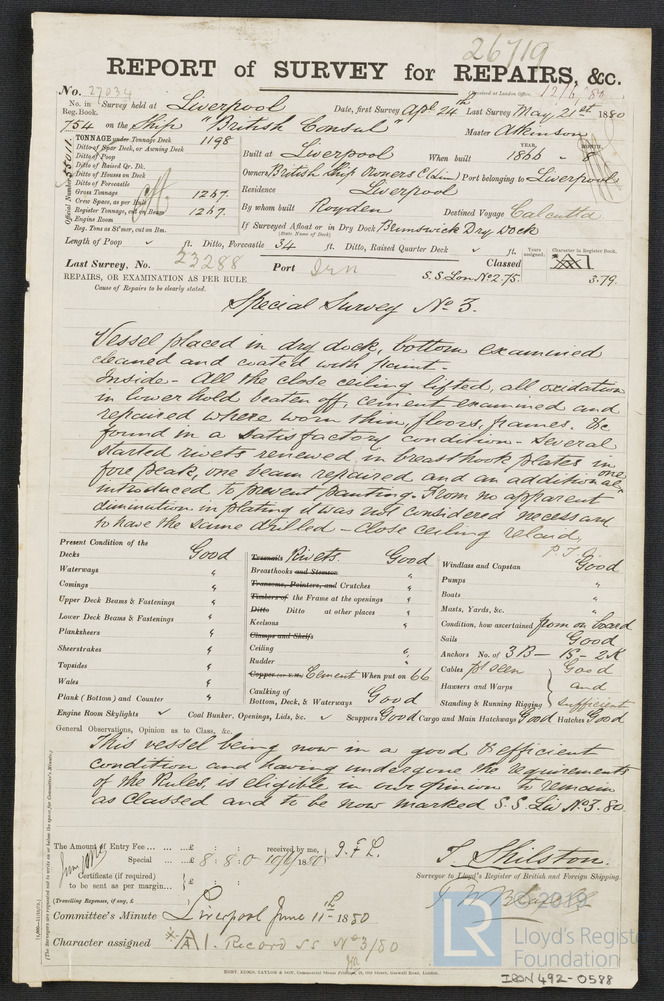 26719
REPORT of SURVEY for REPAIRS, &c.
No. 27034
Received at London Office, 12/6/80
No. in Reg. Book. Survey held at Liverpool Date, first Survey Apl 24th Last Survey May 21st 1880
754 on the Ship "British Consul" Master Atkinson
Official Number
TONNAGE under Tonnage Deck 1198
Ditto of Spar Deck, or Awning Deck
Ditto of Poop
Ditto of Raised Qr. Dk.
Ditto of Houses on Deck
Ditto of Forecastle
Gross Tonnage 1267
Crew Space, as per Rule
Register Tonnage, cut on Beam 1267
Engine Room
Reg. Tons as St'mer, cut on Bm.
Built at Liverpool When built YEAR. 1866 MONTH. 8
Owners British Ship Owners Co (Lim) Port belonging to Liverpool
Residence Liverpool
By whom built Royden Destined Voyage Calcutta
If Surveyed Afloat or in Dry Dock Brunswick Dry Dock
(State Name of Dock)
Length of Poop ✓ ft. Ditto, Forecastle 34 ft. Ditto, Raised Quarter Deck ✓ ft.
Years assigned. Character in Register Book.
Last Survey, No. 23288 Port Irn Classed A1
S.S. Lon No 2.75. 3.79.
REPAIRS, OR EXAMINATION AS PER RULE
Cause of Repairs to be clearly stated.
Special Survey No 3.
Vessel placed in dry dock, bottom examined
cleaned and coated with paint-
Inside - All the close ceiling lifted, all oxidation
in lower hold beaten off, cement examined and
repaired where worn thin, floors, frames. &c
found in a satisfactory condition - Several
started rivets renewed in breasthook plates in
fore peak, one beam repaired and an additional one
introduced to prevent panting. From no apparent
diminution in plating it was not considered necessary
to have the same drilled - Close ceiling relaid.
P.T.O.
Present Condition of the
Decks Good
Waterways "
Comings "
Upper Deck Beams & Fastenings "
Lower Deck Beams & Fastenings "
Planksheers "
Sheerstrakes "
Topsides "
Wales "
Plank (Bottom) and Counter "
Treenails Rivets. Good
Breasthooks and Stemson "
Transoms, Pointers, and Crutches "
Timbers of the Frame at the openings "
Ditto Ditto at other places "
Keelsons "
Clamps and Shelfs
Ceiling "
Rudder "
Copper (or Y.M.) Cement When put on 66
Caulking of Bottom, Deck, & Waterways Good
Windlass and Capstan Good
Pumps "
Boats "
Masts, Yards, &c. "
Condition, how ascertained from on board
Sails Good
Anchors No. of 3B - 1S - 2K
Cables pt seen Good
Hawsers and Warps and
Standing & Running Rigging Sufficient
Engine Room Skylights ✓ Coal Bunker, Openings, Lids, &c. ✓ Scuppers Good Cargo and Main Hatchways Good Hatches Good
General Observations, Opinion as to Class, &c.
This vessel being now in a good & efficient
condition and having undergone the requirements
of the Rules, is eligible in our opinion to remain
as Classed and to be now marked S.S. Liv No 3. 80
The Amount of Entry Fee ... ... ... £ : : received by me,
Special ... ... £ 8 : 8 : 0 10/6/1880 J.F.L.
Certificate (if required)
to be sent as per margin...
(Travelling Expenses, if any, £ )
Committee's Minute Liverpool June 11th 1880
Character assigned A 1. Record SS No 3/80
T. Shilston.
Surveyor to Lloyd's Register of British and Foreign Shipping.
© 2019
LR
Lloyd's Register
Foundation
IRON 492-0588